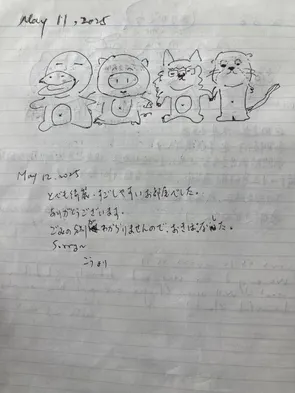 May 11, 2025
May 12, 2025
とても清潔、すごしやすいお部屋でした。
ありがとうございます。
ごみの分別わかりませんので、おきました。
Sorry